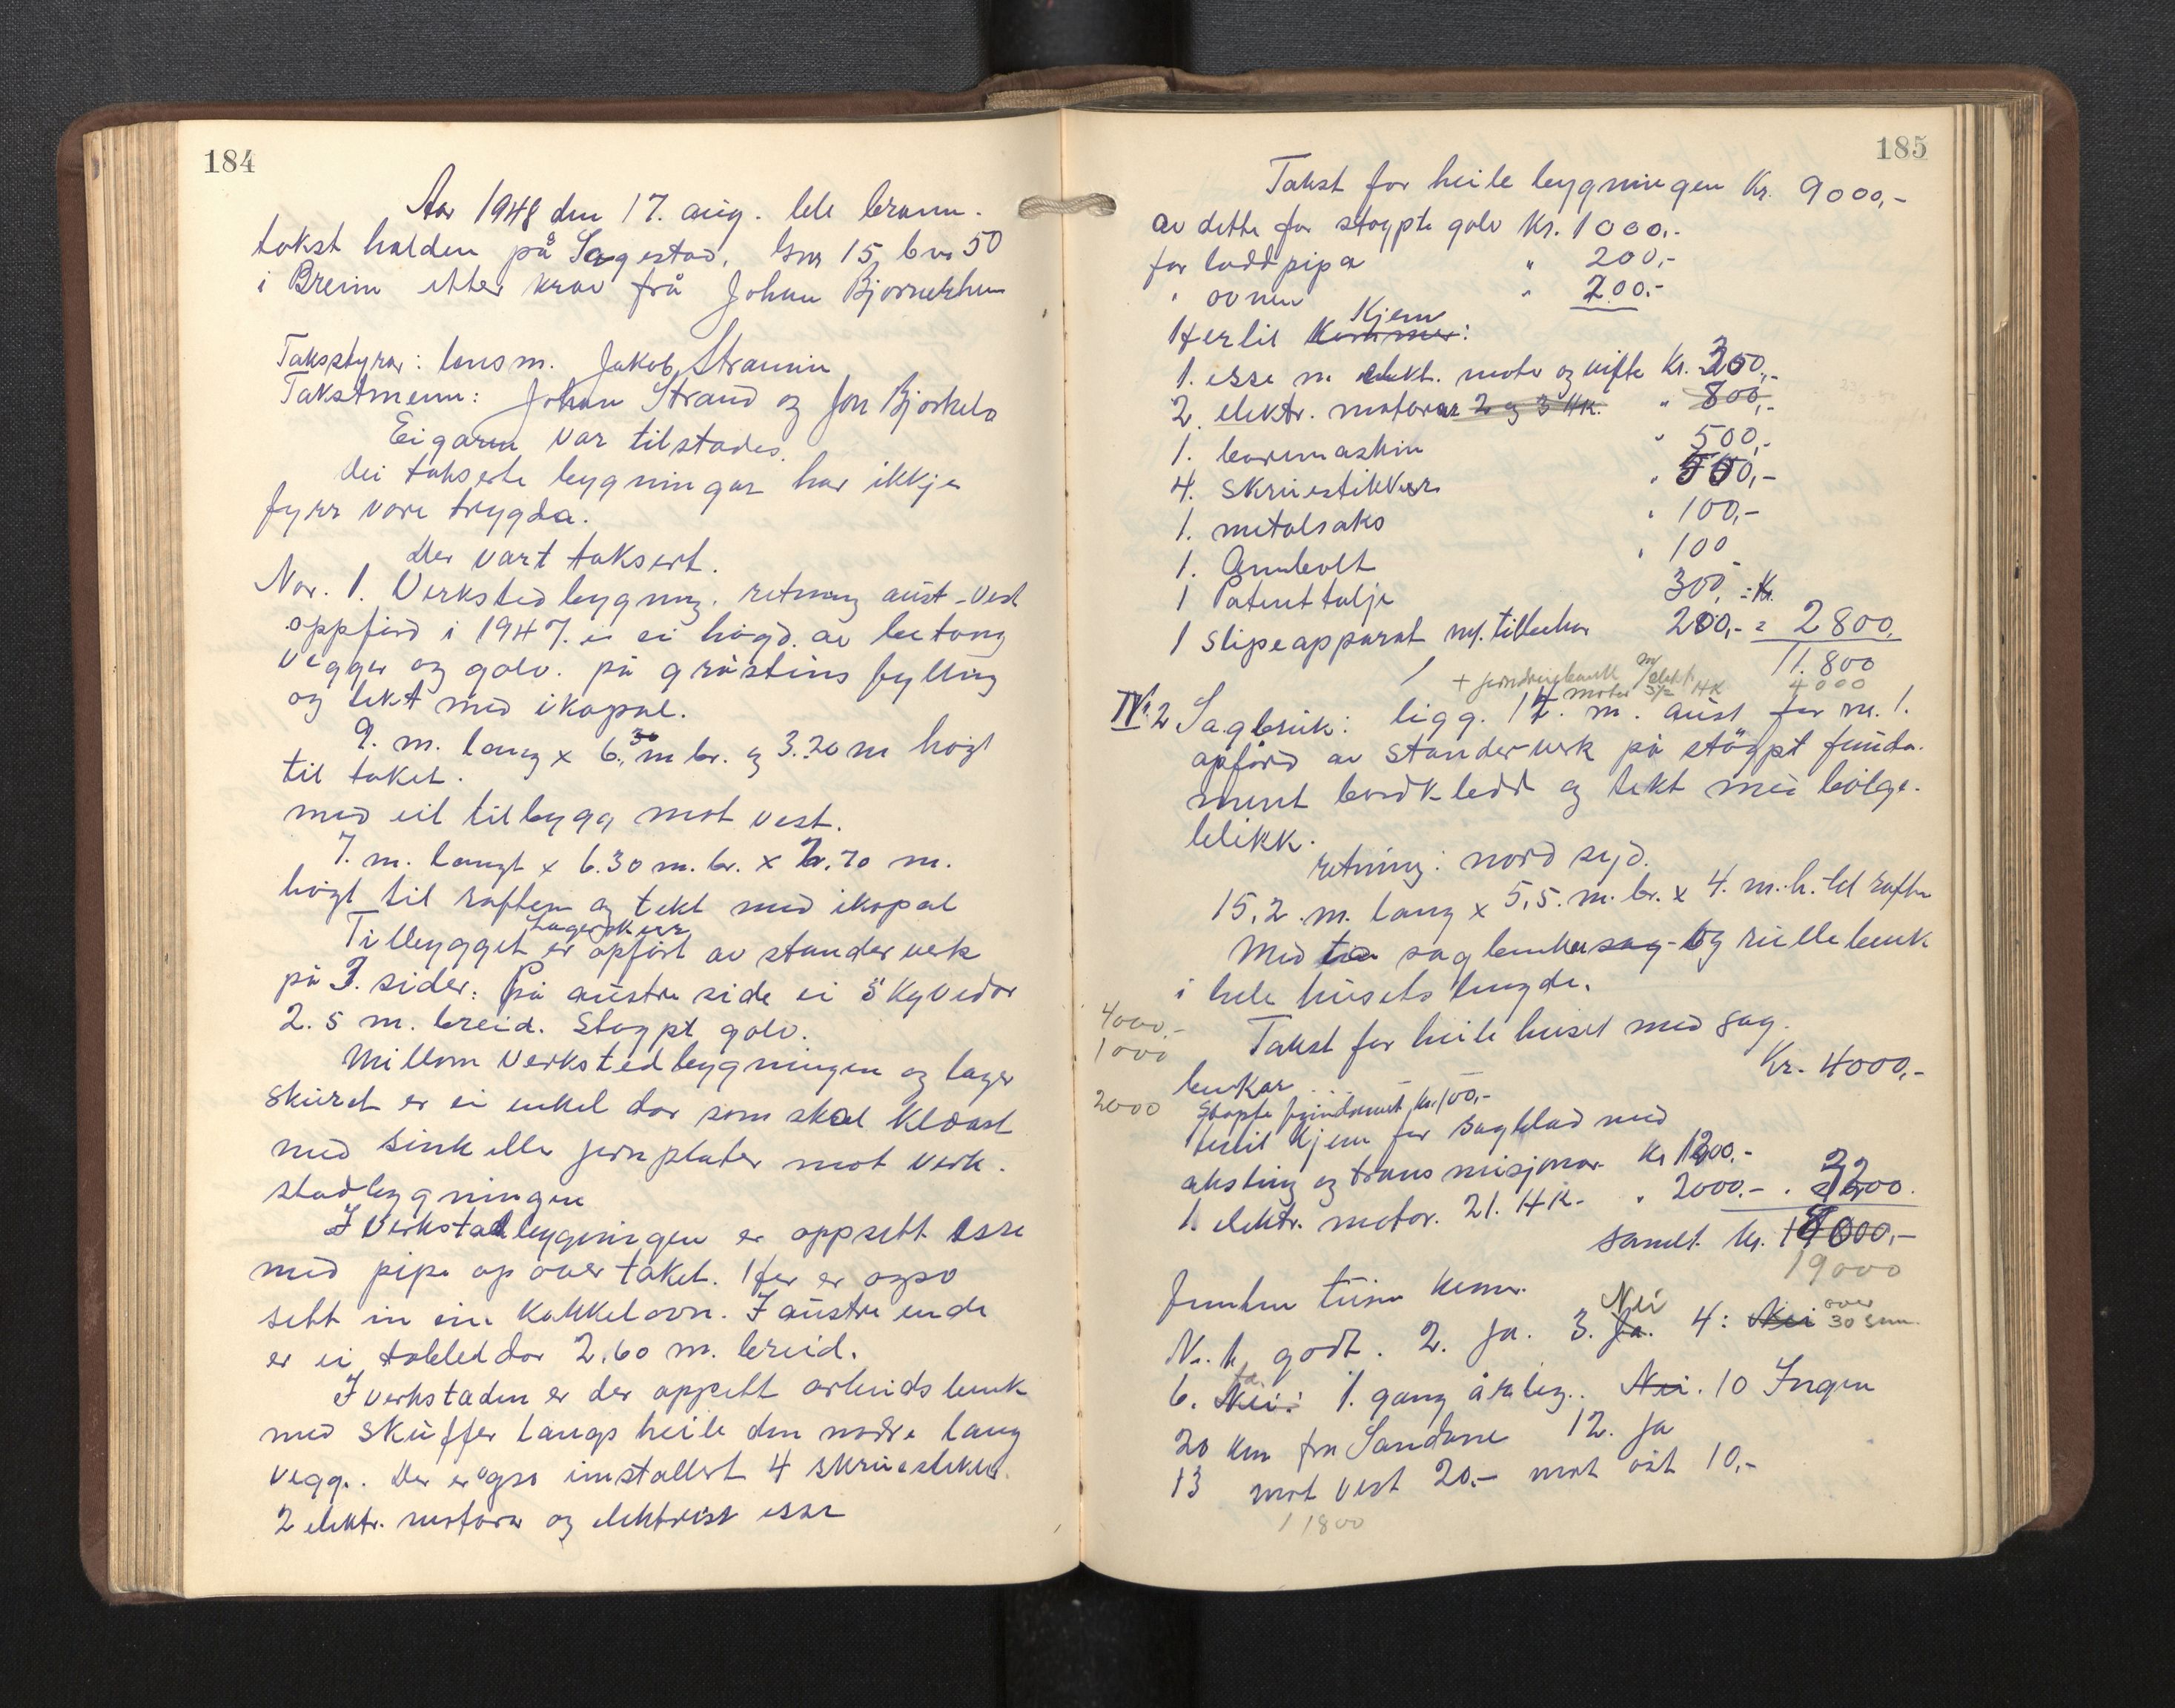 184
Aar 1948 den 17. aug. ble brann-
takst halden på Sagestad, Gnr 15, bnr 50
i Breim etter krav frå Johan
Takststyrar: lensm. Jakob Straumin
Takstmenn: Johan Strand og Jon Bjorkelo
Eigaren var tilstades.
Dei takserte bygningar har ikkje
fyrr vore trygda.
Der vart taksert.
Nor. 1. Verkstedbygning. retning aust-vest
oppförd i 1947. i ei högd. av betong
vegger og golv. på gråsteins fylling
og tekt med ikopal.
9. m. lang x 6.30 m br. og 3.20 m högt
til taket.
med eit tilbygg mot vest.
7. m. langt x 6.30 m. br. x 2.70 m.
högt til raften og tekt med ikopal
Lagerskur
Tilbygget er opfört av stander verk
på 3. sider. På austre side ei skyvedör
2.5 m. breid. Stöypt golv.
Millom verkstedbygningen og lager
skuret er ei enkel dör som skal kledast
med sink eller jernplater mot verk-
stadbygningen
I verkstadbygningen er oppsett esse
med pipe op over taket. Her er ogso
sett in ein kakkelovn. I austre ende
er ei dobbel dör 2.60 m. breid.
I verkstaden er der oppsett arbeidsbenk
med skuffer langs heile den nordre lang
vegg. Der er ogso installert 4 skruestikker
2 elektr. motorar og elektrisk esse
185
Takst for heile bygningen Kr. 9000,-
av dette for stöypte golv Kr. 1000.-
for loddpipa " 200,-
" ovnen " 200.-
Kjem
Hertil Kommer:
1. esse m. elekt. motor og vifte Kr. 350,-
2. elektr. motorar 2 og 3 HK. " 800,-
1. boremaskin " 500,-
4. skruestikker " 550,-
1. metalsaks " 100,-
1. Ambolt " 100
1 Patenttalje 300,- = Kr.
1 slipeapparat m/. tilbehør 200,- = 2800,
11.800
+ jerndreiebenk m/elekt. 4000
motor 3½ HK
Nr. 2 Sagbruk: ligg. 14. m. aust for nr. 1.
opförd av stander verk på stöypt funda-
ment bordkledd og tekt med bölge-
blikk.
retning: nord syd.
15,2 m. lang x 5,5. m. br. x 4. m. h. til raften
Med to sagbenker sag- og rullebenk
i hele husets lengde.
4000.-
1000
Takst for heile huset med sag-
benkar ... Kr. 4000,-
2000
Stöpte fundament, kr. 100,-
Hertil kjem for sagblad med
aksling og transmisjonar Kr 1200.-
1. elektr. motor. 21. HK. " 2000.- . 3200.
samlt. kr. 18000,-
19000
Nei
Nr. 1, godt. 2. ja. 3. Ja. 4: Nei over 30 sm.
ja
6. Nei: 1. gang årleg. Nei. 10 Ingen
20 km fra Sandane 12. ja
13 mot vest 20.- mot öst 10,-
11800